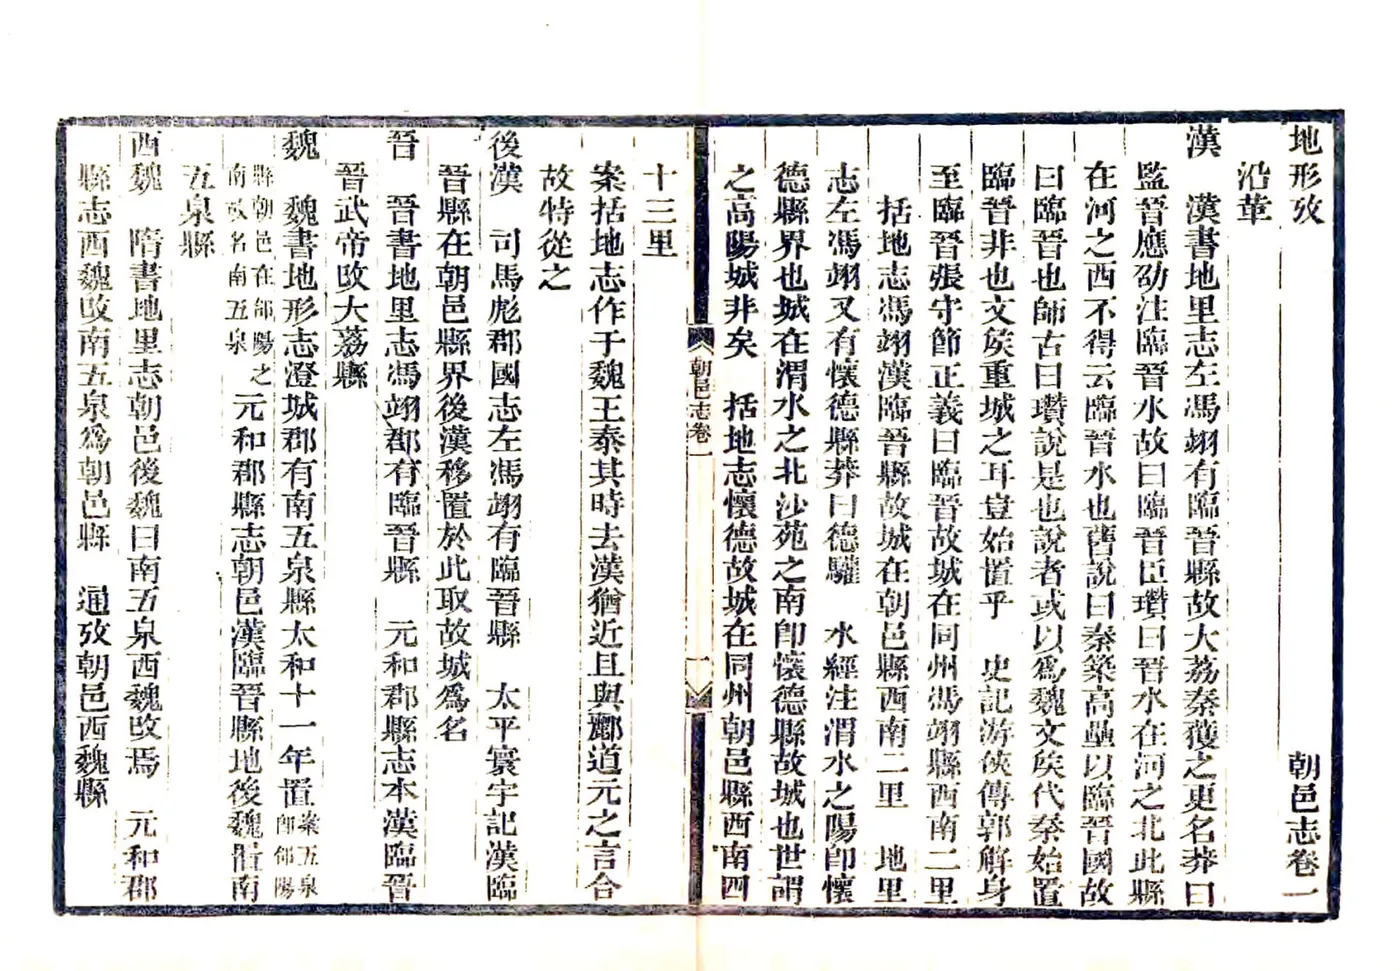 地形攷　朝邑志卷一
沿革
漢　漢書地里志左馮翊有臨晉縣故大荔秦獲之更名莽曰
監晉應劭注臨晉水故曰臨晉臣瓚曰晉水在河之北此縣
在河之西不得云臨晉水也舊說曰秦築高壘以臨晉國故
曰臨晉也師古曰瓚說是也說者或以爲魏文矦代秦始置
臨晉非也文矦重城之耳豈始置乎　史記游俠傳郭解身
至臨晉張守節正義曰臨晉故城在同州馮翊縣西南二里
括地志馮翊漢臨晉縣故城在朝邑縣西南二里　地里
志左馮翊又有懷德縣莽曰德驩　水經注渭水之陽卽懷
德縣界也城在渭水之北沙苑之南卽懷德縣故城也世謂
之高陽城非矣　括地志懷德故城在同州朝邑縣西南四
朝邑志卷一　一
十三里
案括地志作于魏王泰其時去漢猶近且與酈道元之言合
故特從之
後漢　司馬彪郡國志左馮翊有臨晉縣　太平寰宇記漢臨
晉縣在朝邑縣界後漢移置於此取故城爲名
晉　晉書地里志馮翊郡有臨晉縣　元和郡縣志本漢臨晉
晉武帝改大荔縣
魏　魏書地形志澄城郡有南五泉縣太和十一年置案五泉卽郃陽
縣朝邑在郃陽之南故名南五泉　元和郡縣志朝邑漢臨晉縣地後魏置南
五泉縣
西魏　隋書地里志朝邑後魏曰南五泉西魏改焉　元和郡
縣志西魏改南五泉爲朝邑縣　通攷朝邑西魏縣